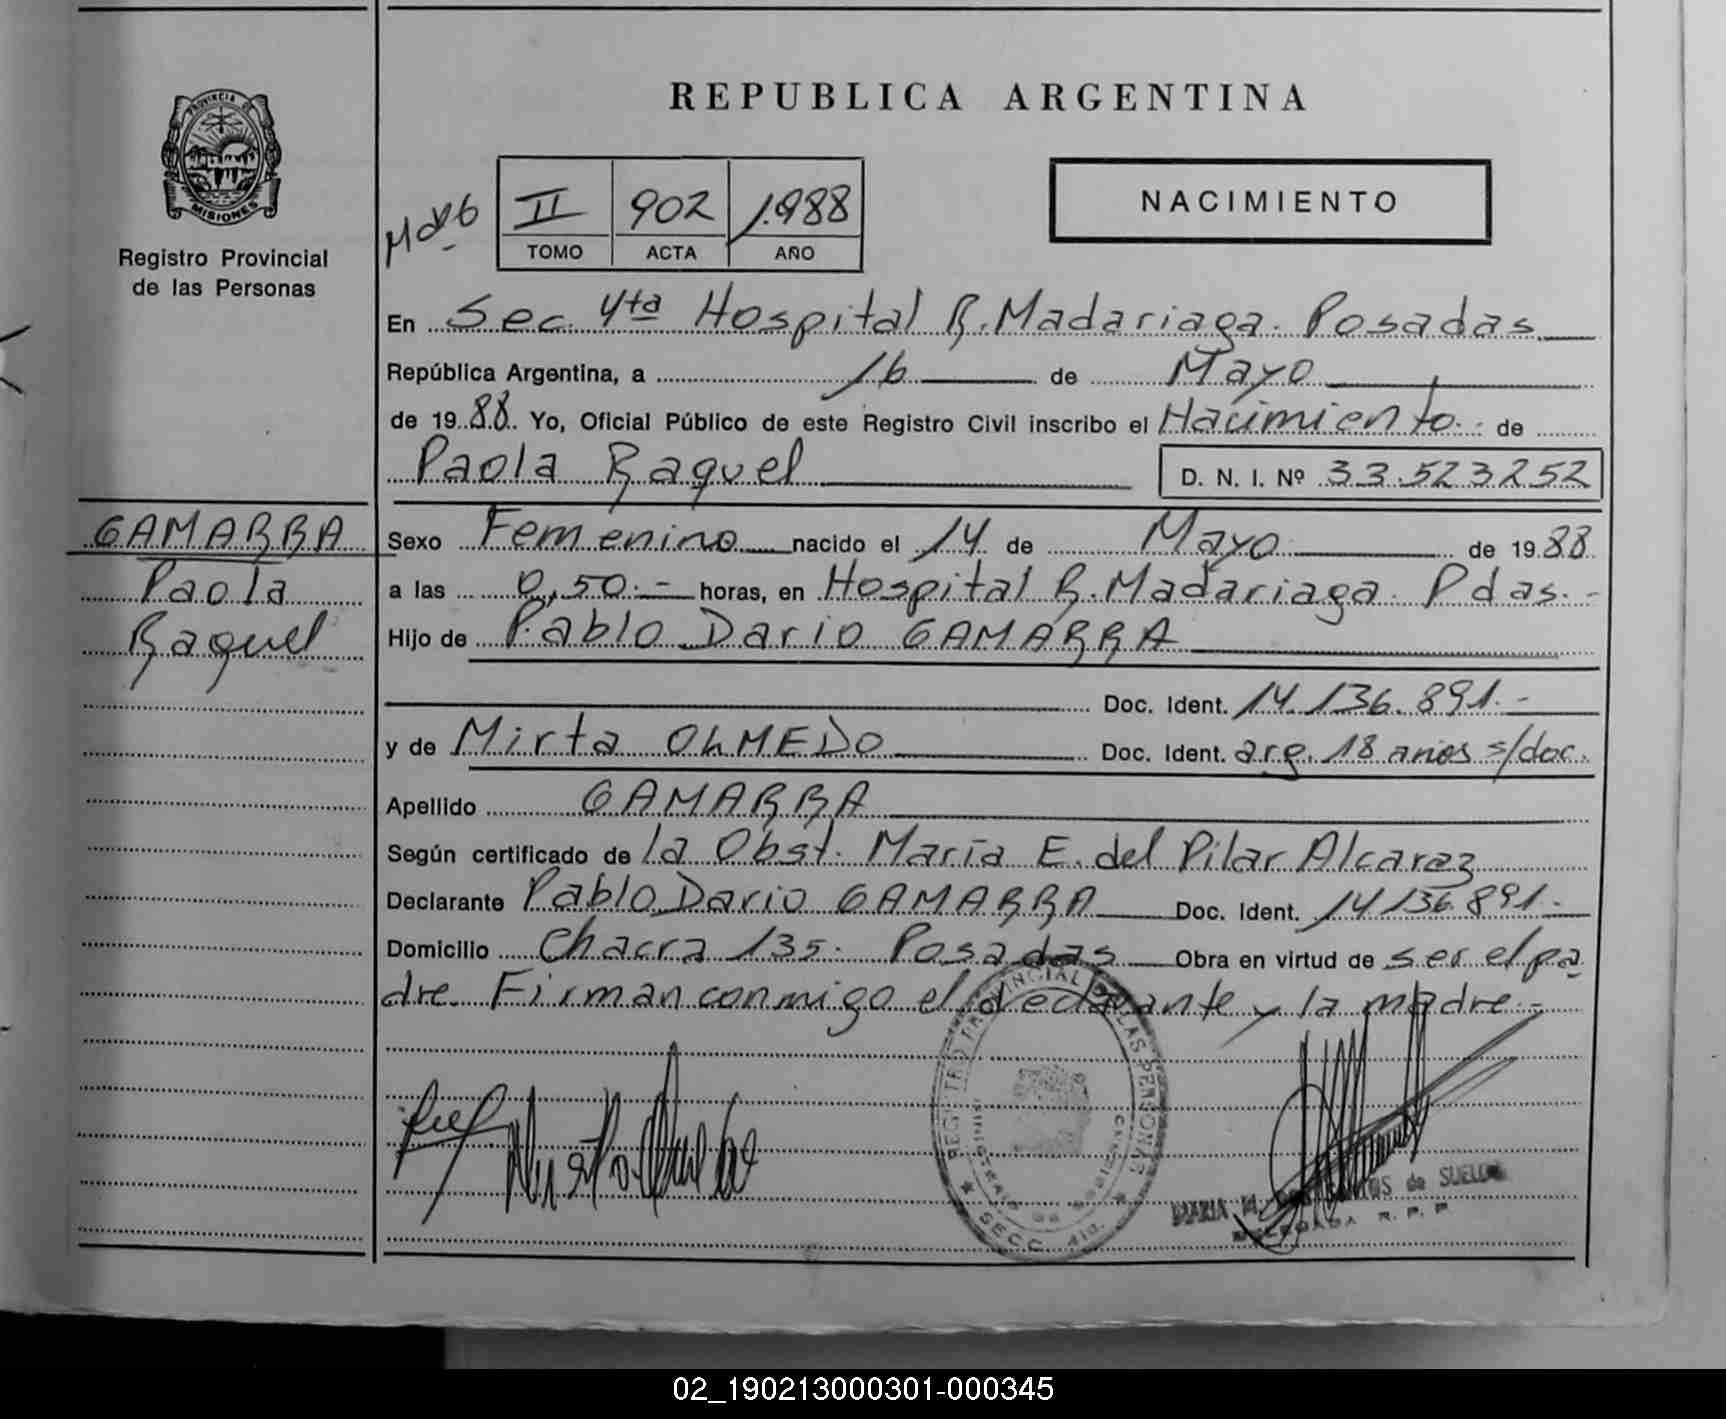 REPUBLICA ARGENTINA
PROVINCIA DE
MISIONES
Registro Provincial
de las Personas
II 902 1.988
TOMO ACTA AÑO
NACIMIENTO
En Sec. 4ta Hospital R. Madariaga. Posadas
República Argentina, a 16 de Mayo
de 1988. Yo, Oficial Público de este Registro Civil inscribo el Nacimiento.- de
Paola Raquel D. N. I. Nº 33.523252
GAMARRA
Paola
Raquel
Sexo Femenino nacido el 14 de Mayo de 1988
a las 0,50.- horas, en Hospital R. Madariaga. Pdas.-
Hijo de Pablo Dario GAMARRA
Doc. Ident. 14.136.891.-
y de Mirta OLMEDO Doc. Ident. arg. 18 años s/doc.
Apellido GAMARRA
Según certificado de la Obst. María E. del Pilar Alcaraz
Declarante Pablo Dario GAMARRA Doc. Ident. 14136.891.-
Domicilio Chacra 135. Posadas Obra en virtud de ser el pa
dre. Firman conmigo el declarante y la madre.-
REGISTRO PROVINCIAL DE LAS PERSONAS
SECC. 4ta.
MARIA SANTOS de SUELDO
DELEGADA R. P. P.
02_190213000301-000345